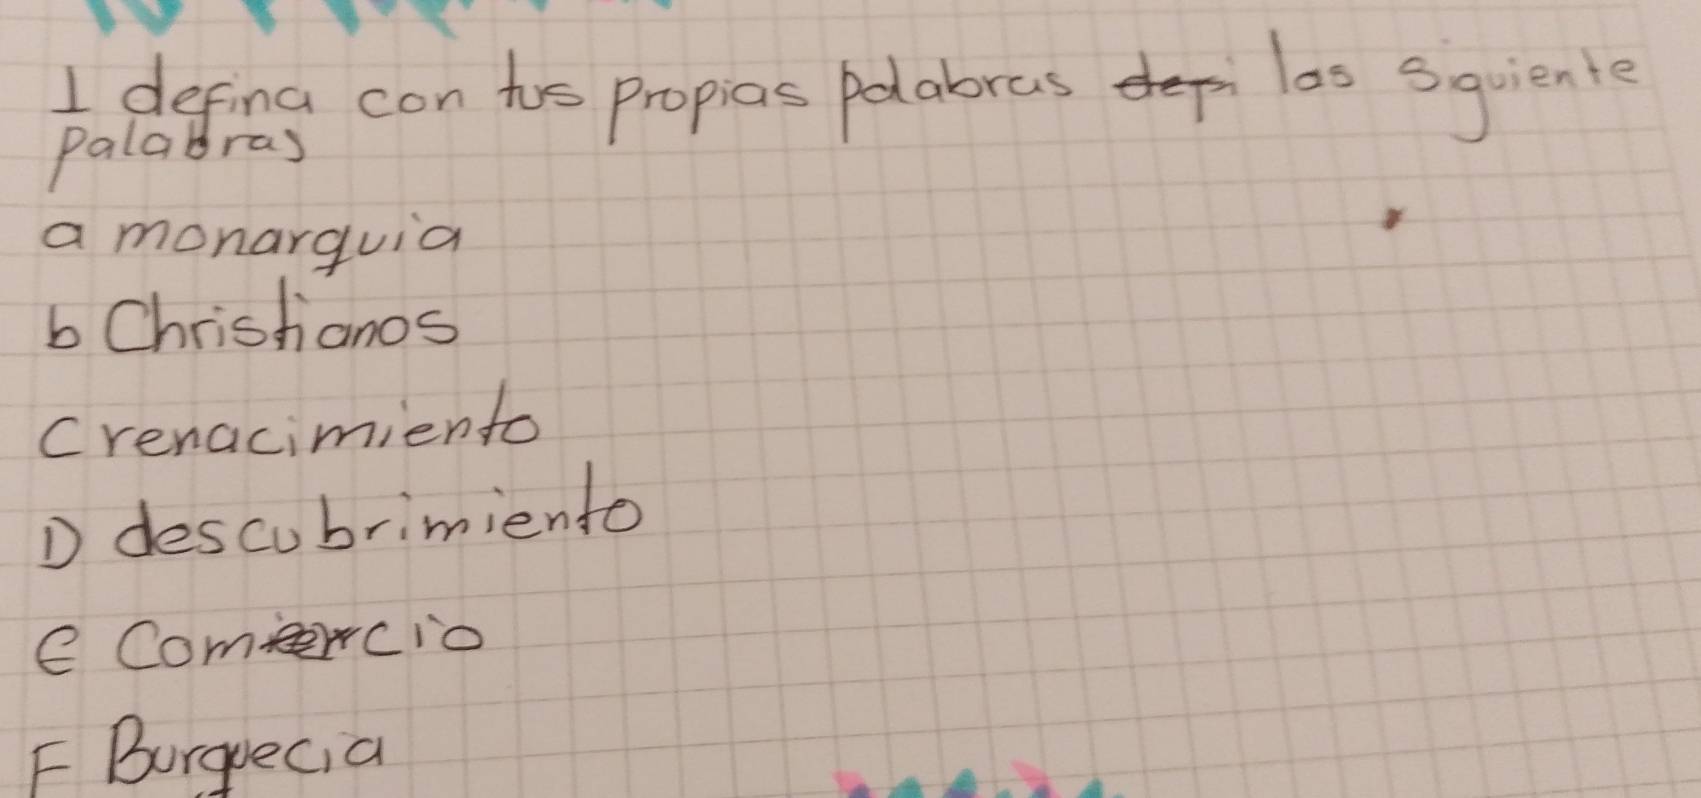 1 defina con tus propias palabras las siguiente
palabras
a monarquia
b Christianos
C renacimiento
D descubrimiento
e Comercio
F Burquecia